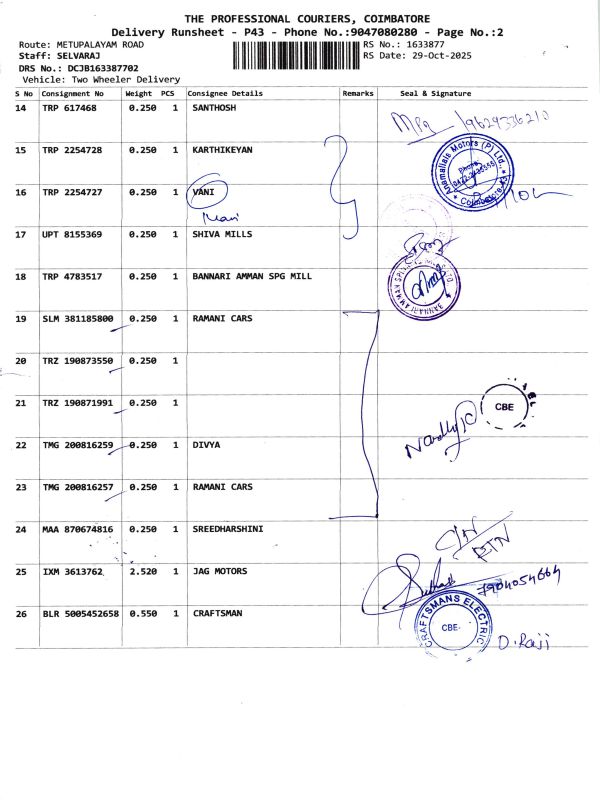 THE PROFESSIONAL COURIERS, COIMBATORE
Delivery Runsheet - P43 - Phone No.:9047080280 - Page No.:2
Route: METUPALAYAM ROAD RS No.: 1633877
Staff: SELVARAJ RS Date: 29-Oct-2025
DRS No.: DCJB163387702
Vehicle: Two Wheeler Delivery
S No Consignment No Weight PCS Consignee Details Remarks Seal & Signature
14 TRP 617468 0.250 1 SANTHOSH
15 TRP 2254728 0.250 1 KARTHIKEYAN
Anamallais Motors (P) Ltd.
16 TRP 2254727 0.250 1 VANI
Coimbatore
17 UPT 8155369 0.250 1 SHIVA MILLS
18 TRP 4783517 0.250 1 BANNARI AMMAN SPG MILL
BANNARI AMMAN
19 SLM 381185800 0.250 1 RAMANI CARS
20 TRZ 190873550 0.250 1
21 TRZ 190871991 0.250 1
CBE
22 TMG 200816259 0.250 1 DIVYA
23 TMG 200816257 0.250 1 RAMANI CARS
24 MAA 870674816 0.250 1 SREEDHARSHINI
RTN
25 IXM 3613762 2.520 1 JAG MOTORS
7904054664
26 BLR 5005452658 0.550 1 CRAFTSMAN
CRAFTSMANS ELECTRIC
CBE.
D. Raji